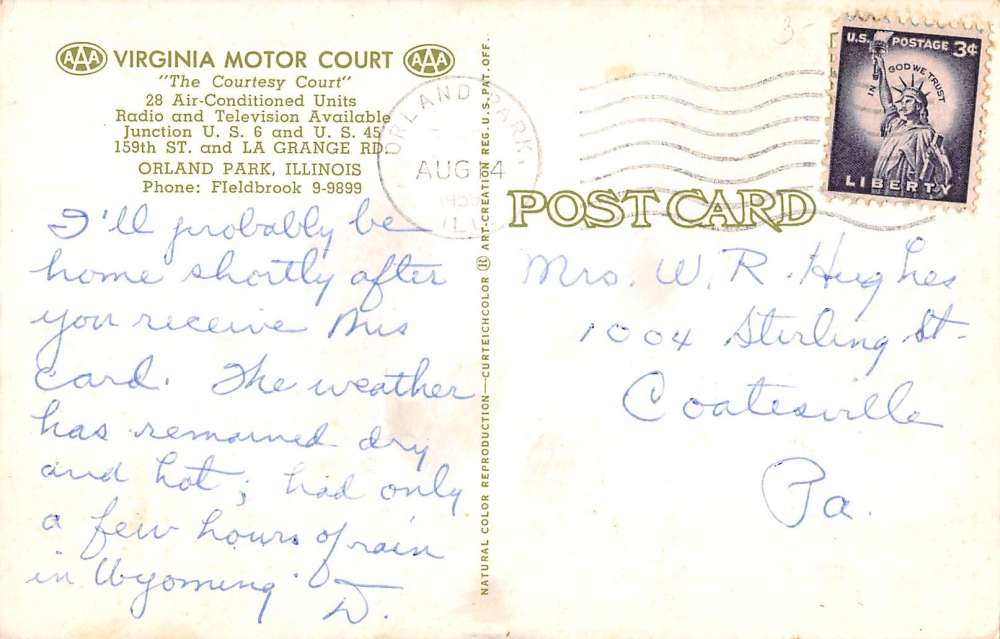 AAA VIRGINIA MOTOR COURT AAA
"The Courtesy Court"
28 Air-Conditioned Units
Radio and Television Available
Junction U. S. 6 and U. S. 45
159th ST. and LA GRANGE RD.
ORLAND PARK, ILLINOIS
Phone: FIeldbrook 9-9899
I'll probably be
home shortly after
you receive this
card. The weather
has remained dry
and hot; had only
a few hours of rain
in Wyoming. D.
NATURAL COLOR REPRODUCTION—CURTEICHCOLOR ART-CREATION REG. U.S. PAT. OFF.
ORLAND PARK,
AUG 4
ILL
3-
U.S. POSTAGE 3¢
IN GOD WE TRUST
LIBERTY
POST CARD
Mrs. W. R. Hughes
1004 Sterling St-
Coatesville
Pa.